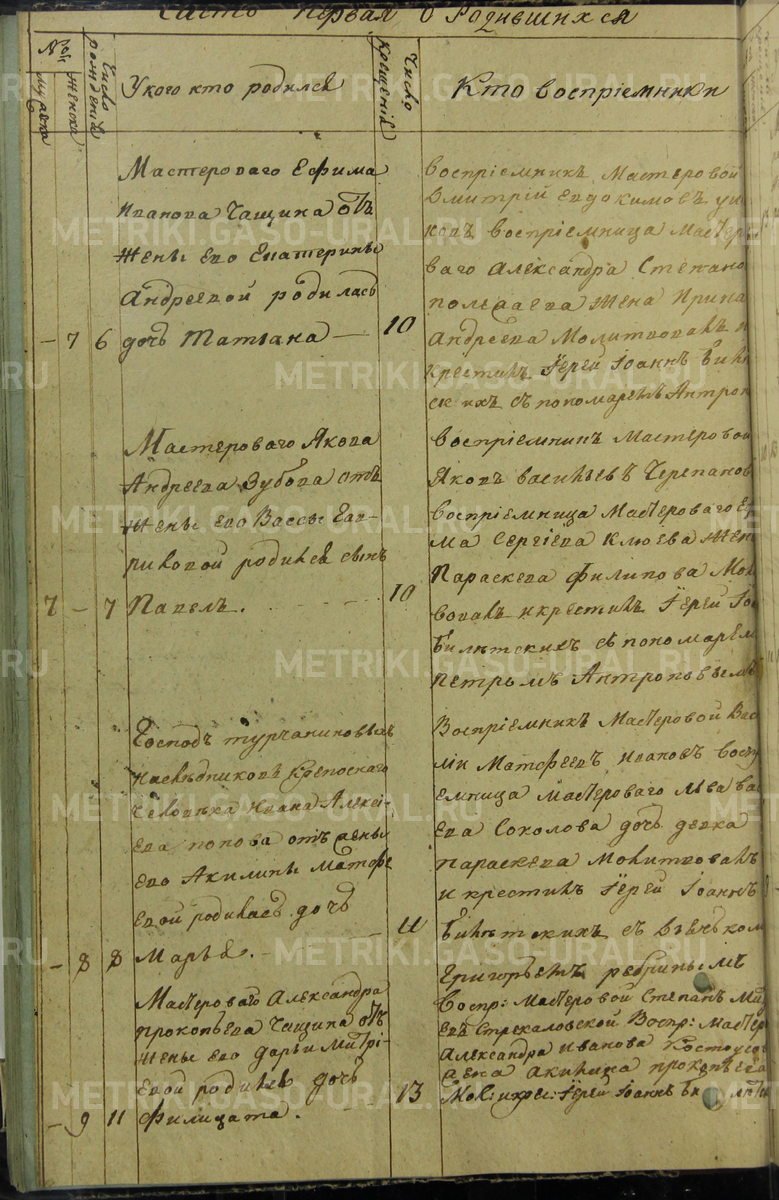 Часть первая о родившихся
№
мужска
женска
Число рожденія
У кого кто родился
Число крещенія
Кто воспріемники
Мастероваго Ефима
Иванова Чащина отъ
жены его Екатерины
Андреевой родилась
- 7 6 дочь Татіана — 10
воспріемникъ Мастеровой
Дмитрій Евдокимовъ
ковъ воспріемница Мастеро
ваго Александра Степано
жена Ирина
Андреева Молитвовалъ и
крестилъ Іерей Іоаннъ Били
скихъ съ пономаремъ Антроп
Мастероваго Якова
Андреева Зубова отъ
жены его Вассы Гав-
риловой родился сынъ
7 - 7 Павелъ. 10
воспріемникъ мастеровой
Яковъ васильевъ Черепанов
воспріемница Мастероваго Ер
ма Сергіева Клюева жен
Параскева Филипова Мол
вовалъ и крестилъ Іерей Іоа
Билетскихъ съ пономарем
петромъ Антроповымъ
Господъ турчаниновыхъ
наследниковъ Крепоснаго
человека Ивана Алексі-
ева попова отъ жены
его Акилины Матфе
евой родилась дочь
- 8 8 Марья. 11
Воспріемникъ Мастеровой Вас
лій Матфеевъ Ивановъ воспр
емница мастероваго льва вас
ева Соколова дочь девка
параскева Молитвовалъ
и крестилъ Іерей Іоаннъ
Билетскихъ съ Дьячком
Григорьемъ ребринымъ
Мастероваго Александра
прокопьева Чащина отъ
жены его дарьи Митрі-
евой родилась дочь
- 9 11 Филицата. 13
Воспр: мастеровой Степанъ
евъ Стрекаловской Воспр: мастер
Александра Иванова Костоусов
жена акилина прокопьева
Мол: и крес: Іерей Іоаннъ
METRIKI.GASO-URAL.RU